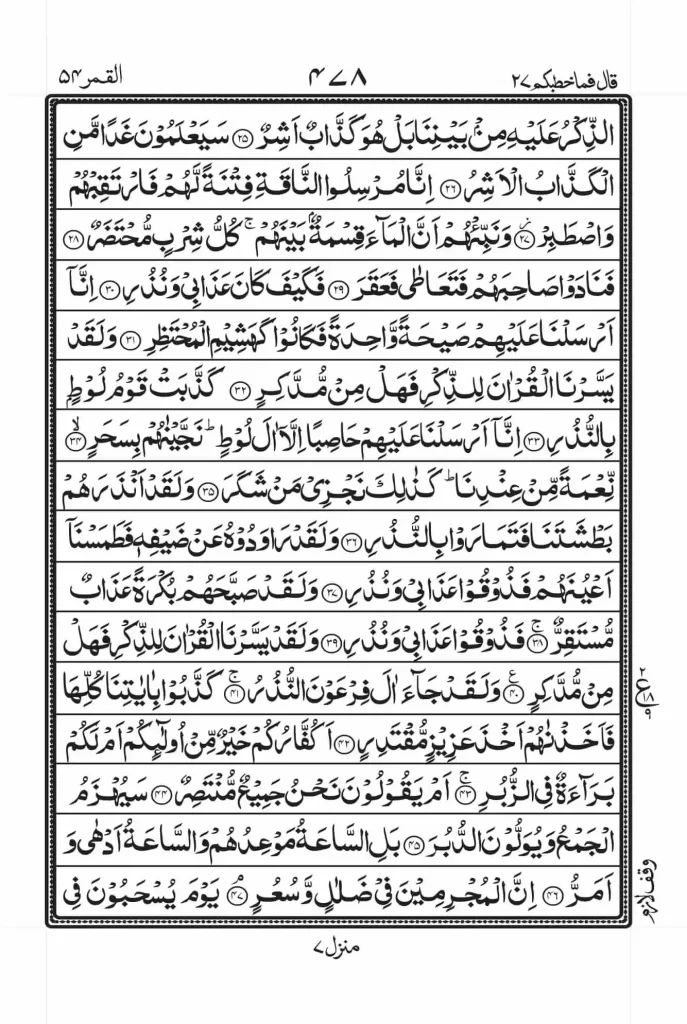 قال فما خطبكم ٢٧
٤٧٨
القمر ٥٤
الذِّكۡرُ عَلَيۡهِ مِنۡۢ بَيۡنِنَا بَلۡ هُوَ كَذَّابٌ اَشِرٌ ﴿۲۵﴾ سَيَعۡلَمُوۡنَ غَدًا مَّنِ
الۡكَذَّابُ الۡاَشِرُ ﴿۲۶﴾ اِنَّا مُرۡسِلُوا النَّاقَةِ فِتۡنَةً لَّهُمۡ فَارۡتَقِبۡهُمۡ
وَاصۡطَبِرۡ ﴿۲۷﴾ وَنَبِّئۡهُمۡ اَنَّ الۡمَآءَ قِسۡمَةٌۢ بَيۡنَهُمۡ‌ۚ كُلُّ شِرۡبٍ مُّحۡتَضَرٌ ﴿۲۸﴾
فَنَادَوۡا صَاحِبَهُمۡ فَتَعَاطٰى فَعَقَرَ ﴿۲۹﴾ فَكَيۡفَ كَانَ عَذَابِىۡ وَنُذُرِ ﴿۳۰﴾ اِنَّاۤ
اَرۡسَلۡنَا عَلَيۡهِمۡ صَيۡحَةً وَّاحِدَةً فَكَانُوۡا كَهَشِيۡمِ الۡمُحۡتَظِرِ ﴿۳۱﴾ وَلَقَدۡ
يَسَّرۡنَا الۡقُرۡاٰنَ لِلذِّكۡرِ فَهَلۡ مِنۡ مُّدَّكِرٍ ﴿۳۲﴾ كَذَّبَتۡ قَوۡمُ لُوۡطٍۢ
بِالنُّذُرِ ﴿۳۳﴾ اِنَّاۤ اَرۡسَلۡنَا عَلَيۡهِمۡ حَاصِبًا اِلَّاۤ اٰلَ لُوۡطٍ‌ؕ نَجَّيۡنٰهُمۡ بِسَحَرٍۙ ﴿۳۴﴾
نِّعۡمَةً مِّنۡ عِنۡدِنَا‌ؕ كَذٰلِكَ نَجۡزِىۡ مَنۡ شَكَرَ ﴿۳۵﴾ وَلَقَدۡ اَنۡذَرَهُمۡ
بَطۡشَتَنَا فَتَمَارَوۡا بِالنُّذُرِ ﴿۳۶﴾ وَلَقَدۡ رَاوَدُوۡهُ عَنۡ ضَيۡفِهٖ فَطَمَسۡنَاۤ
اَعۡيُنَهُمۡ فَذُوۡقُوۡا عَذَابِىۡ وَنُذُرِ ﴿۳۷﴾ وَلَقَدۡ صَبَّحَهُمۡ بُكۡرَةً عَذَابٌ
مُّسۡتَقِرٌّ‌ۚ ﴿۳۸﴾ فَذُوۡقُوۡا عَذَابِىۡ وَنُذُرِ ﴿۳۹﴾ وَلَقَدۡ يَسَّرۡنَا الۡقُرۡاٰنَ لِلذِّكۡرِ فَهَلۡ
مِنۡ مُّدَّكِرٍ ﴿۴۰﴾ وَلَقَدۡ جَآءَ اٰلَ فِرۡعَوۡنَ النُّذُرُ‌ۚ ﴿۴۱﴾ كَذَّبُوۡا بِاٰيٰتِنَا كُلِّهَا
فَاَخَذۡنٰهُمۡ اَخۡذَ عَزِيۡزٍ مُّقۡتَدِرٍ ﴿۴۲﴾ اَكُفَّارُكُمۡ خَيۡرٌ مِّنۡ اُولٰٓٮِٕكُمۡ اَمۡ لَكُمۡ
بَرَآءَةٌ فِى الزُّبُرِ‌ۚ ﴿۴۳﴾ اَمۡ يَقُوۡلُوۡنَ نَحۡنُ جَمِيۡعٌ مُّنۡتَصِرٌ ﴿۴۴﴾ سَيُهۡزَمُ
الۡجَمۡعُ وَيُوَلُّوۡنَ الدُّبُرَ ﴿۴۵﴾ بَلِ السَّاعَةُ مَوۡعِدُهُمۡ وَالسَّاعَةُ اَدۡهٰى وَ
اَمَرُّ ﴿۴۶﴾ اِنَّ الۡمُجۡرِمِيۡنَ فِىۡ ضَلٰلٍ وَّسُعُرٍ‌ۘ ﴿۴۷﴾ يَوۡمَ يُسۡحَبُوۡنَ فِى
وقف لازم
منزل ٧